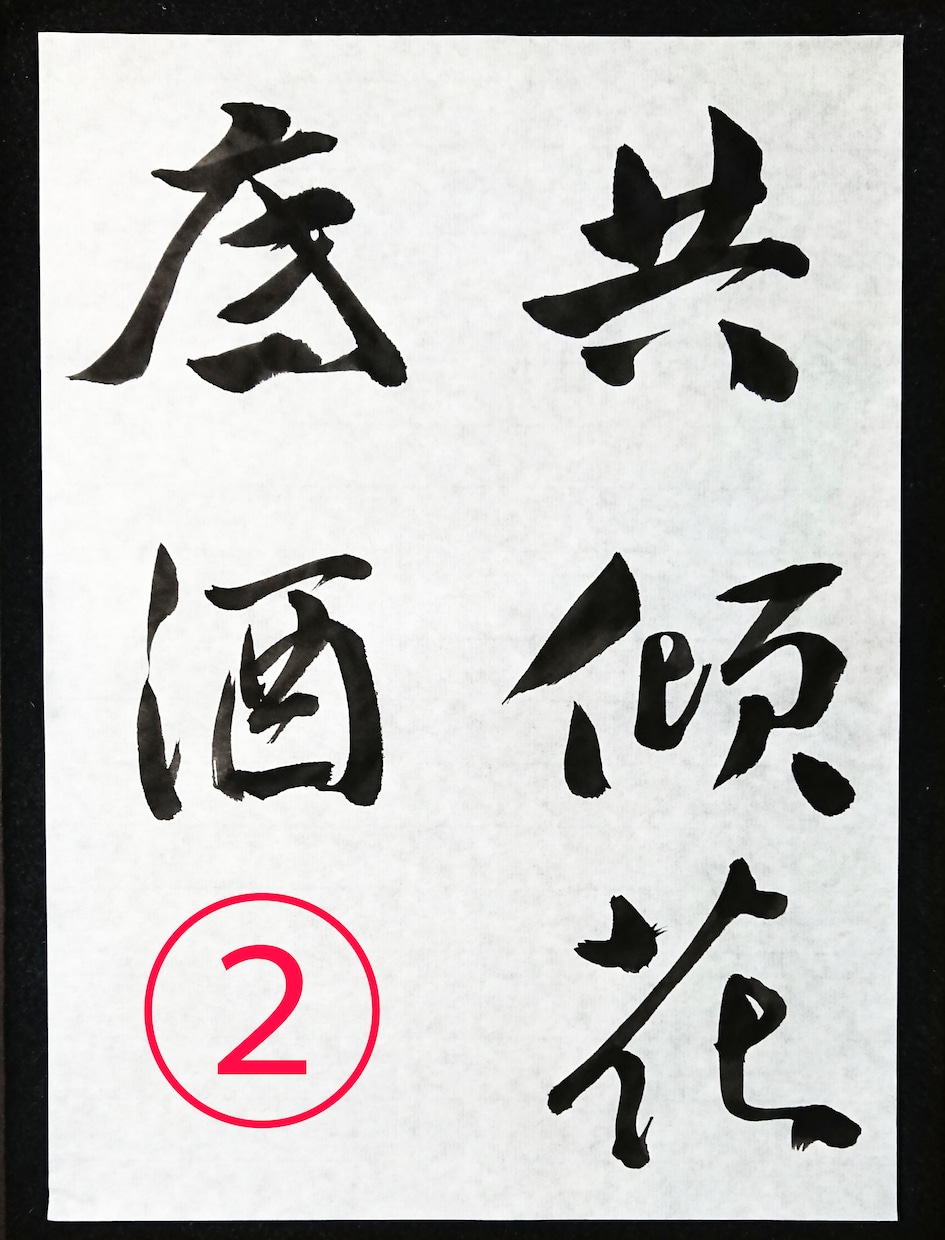 共傾花
底酒
②